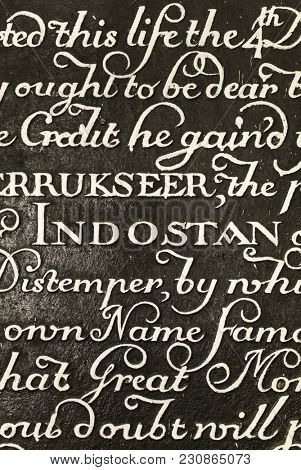 ted this life the 4th D
y ought to be dear t
e Credit he gain'd
ERRUKSEER, the p
INDOSTAN
Distemper, by whi
own Name famo
hat Great Mo
out doubt will p